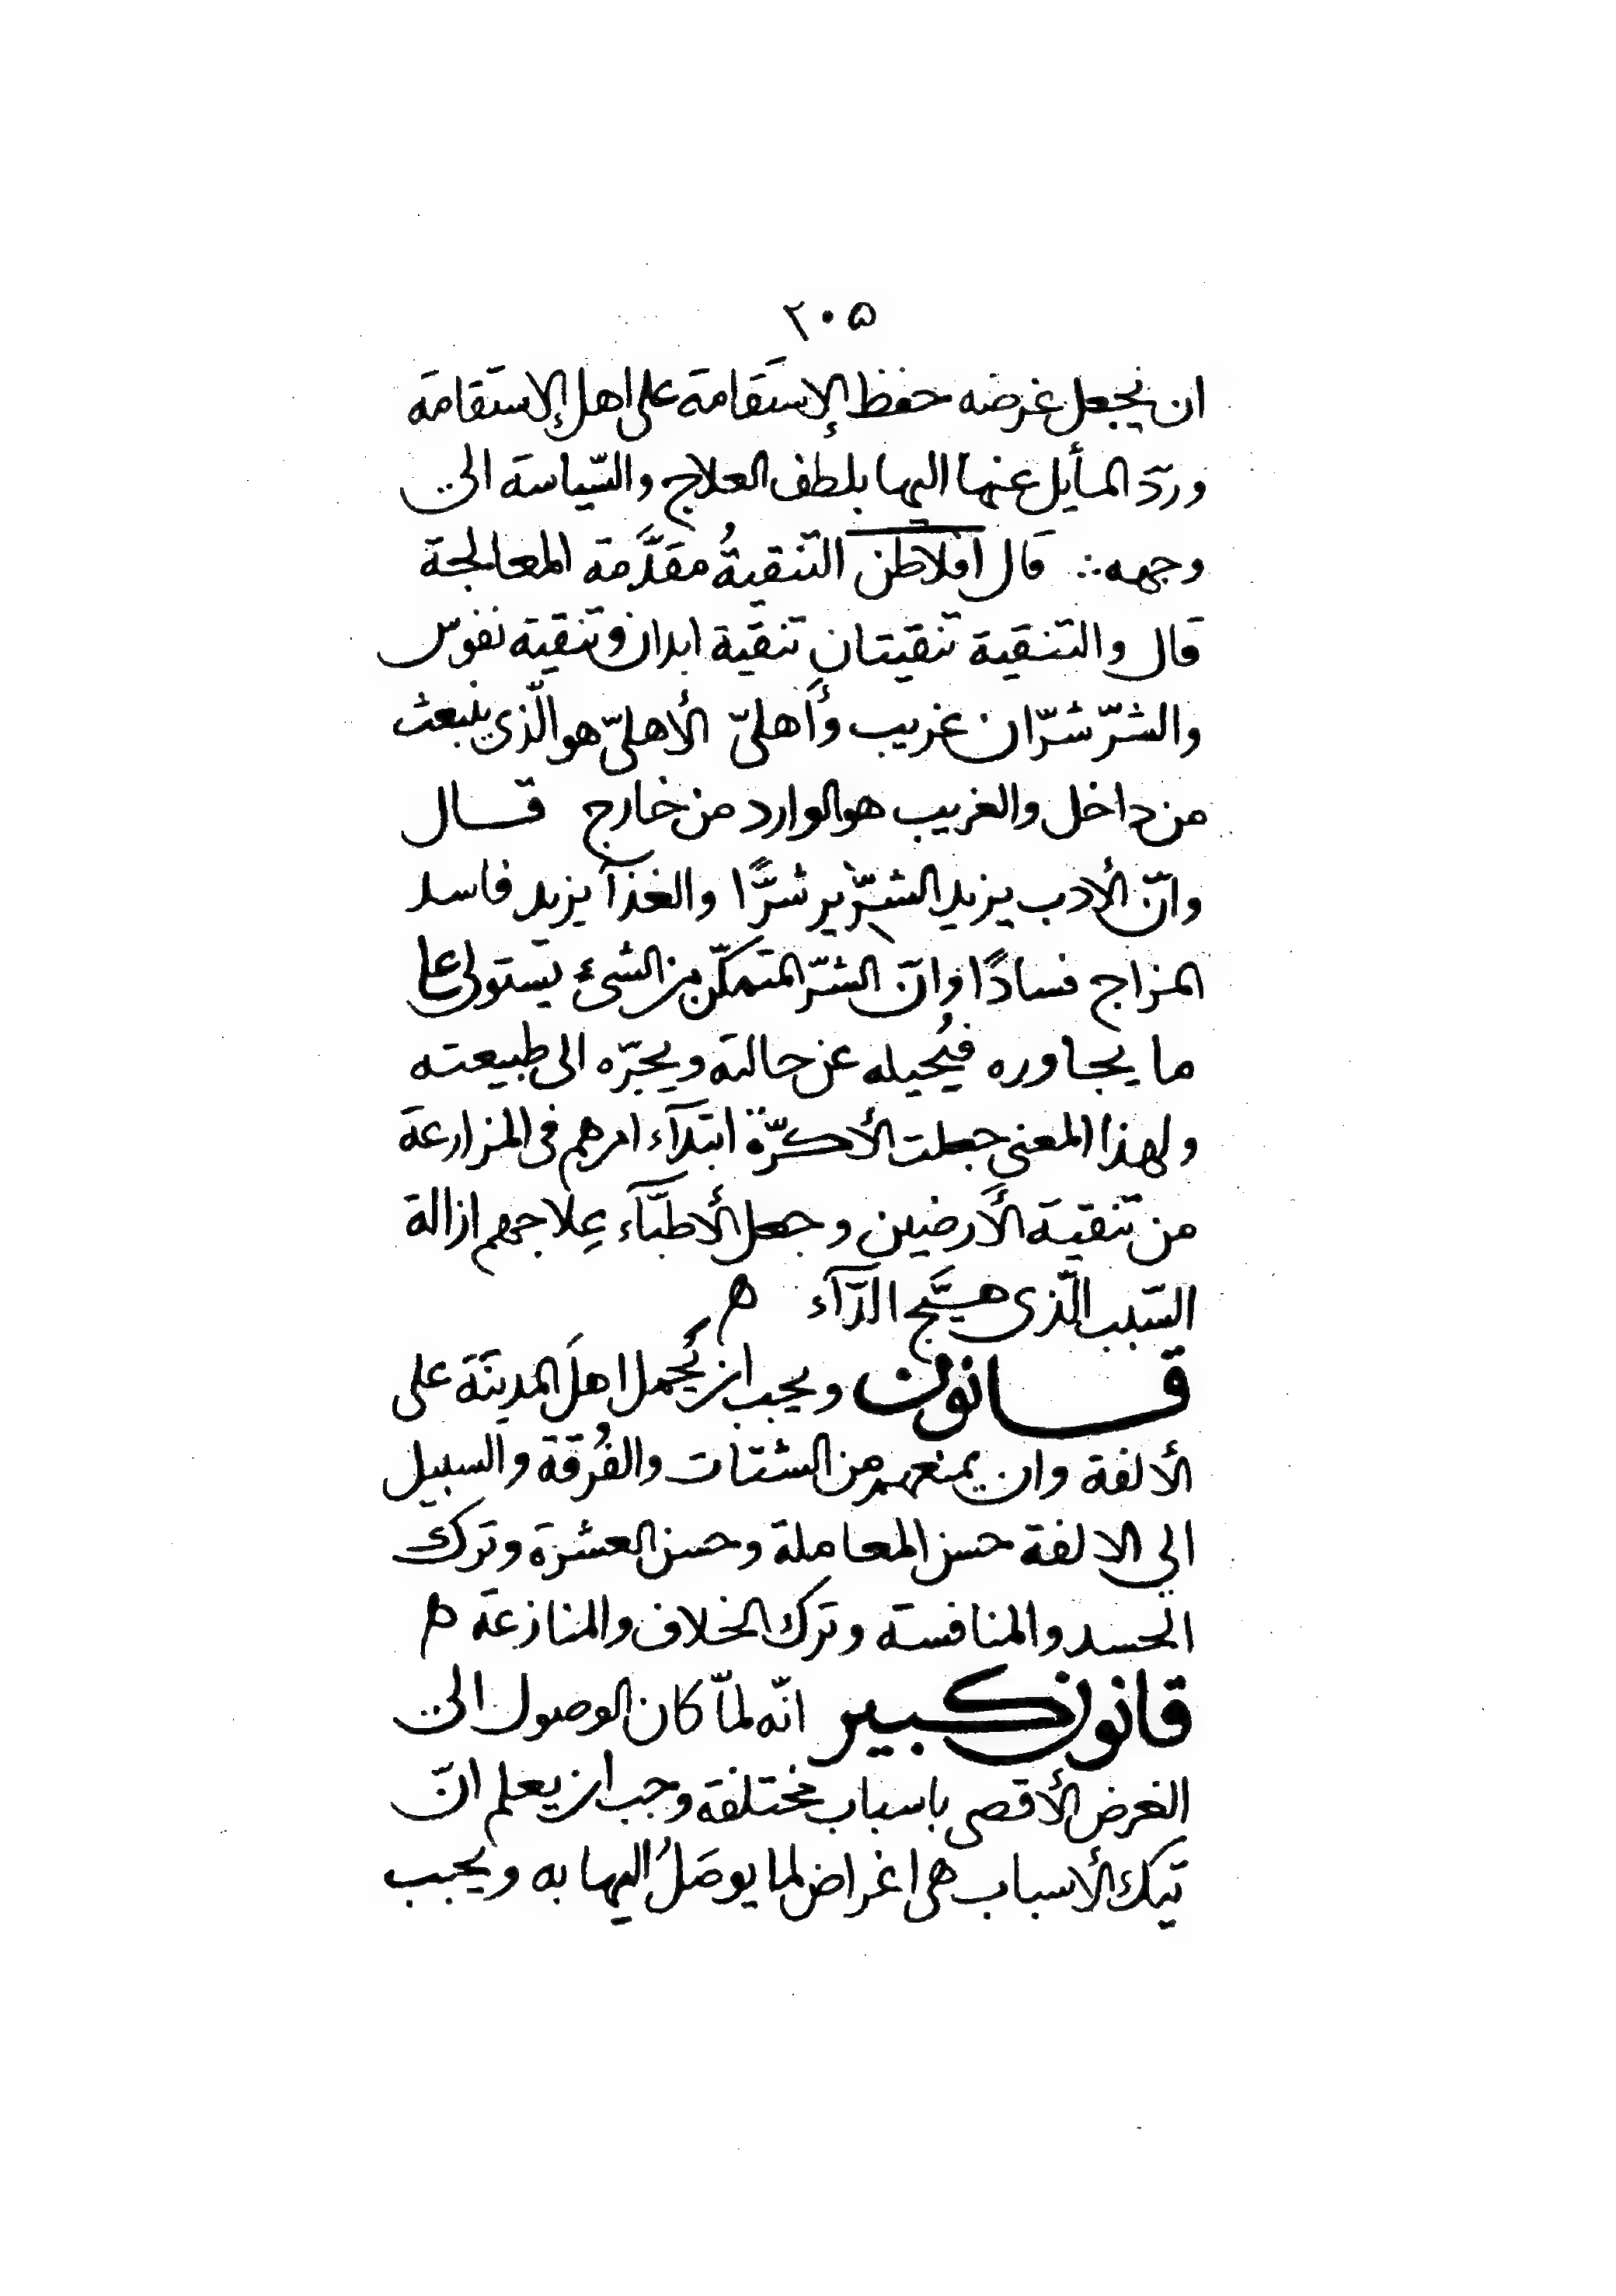 ٢٠٥
ان يجعل غرضه حفظ الإستقامة على اهل الإستقامة
وردّ المأيل عنها اليها بلطف العلاج والسّياسة الى
وجهه ∴ قال افلاطن التنقيةُ مقدَّمة المعالجة
قال والتنقية تنقيتان تنقية ابدان وتنقية نفوس
والشرّ شرّان غريب وأهلىّ الأهلىّ هو الّذى ينبعث
من داخل والغريب هو الوارد من خارج قال
وانّ الأدب يزيد الشرّير شرًّا والغذآ يزيد فاسد
المزاج فسادًا وانّ الشرّ المتمكّن من الشىء يستولى على
ما يجاوره فيُحيله عن حالته ويجرّه الى طبيعته
ولهذا المعنى جعلت الأكرّة ابتدآء امرهم فى المزارعة
من تنقية الأرضين وجعل الأطبّآء عِلاجهم ازالة
السّبب الّذى هيَّج الدّآء ه‍
قانون ويجب ان يُحمل اهلَ المدينة على
الألفة وان يمنعهم من الشتات والفُرقة والسبيل
الى الالفة حسن المعاملة وحسن العشرة وترك
الحسد والمنافسة وترك الخلاف والمنازعة ه‍
قانون كبير انّه لمّا كان الوصول الى
الغرض الأقصى باسباب مختلفة وجب ان يعلم انّ
تيك الأسباب هى اغراض لما يوصَلُ اليها به ويجب